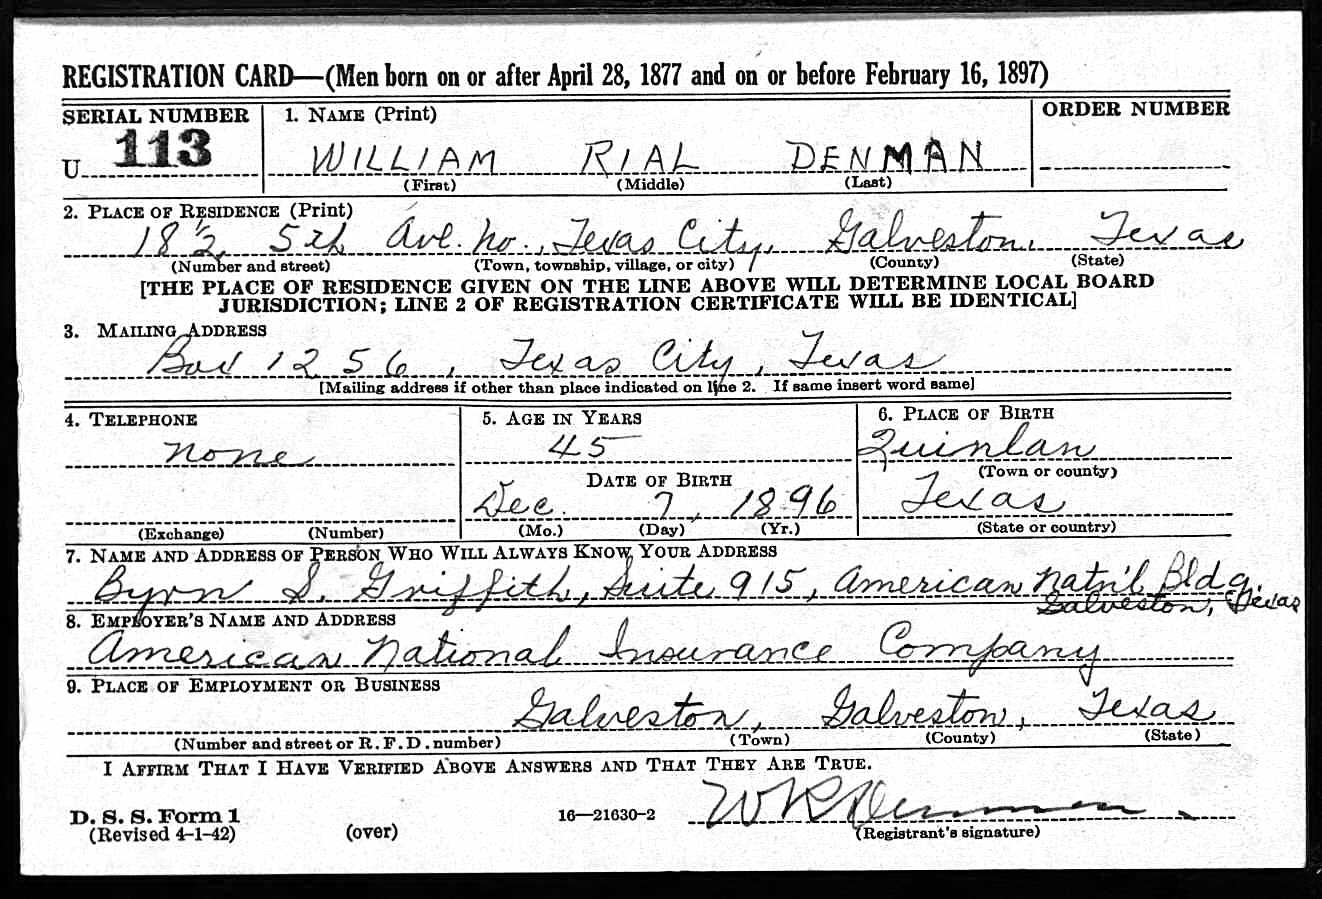 REGISTRATION CARD—(Men born on or after April 28, 1877 and on or before February 16, 1897)
SERIAL NUMBER 1. NAME (Print) ORDER NUMBER
U 113 WILLIAM RIAL DENMAN
(First) (Middle) (Last)
2. PLACE OF RESIDENCE (Print)
18½ 5th Ave. No., Texas City, Galveston, Texas
(Number and street) (Town, township, village, or city) (County) (State)
[THE PLACE OF RESIDENCE GIVEN ON THE LINE ABOVE WILL DETERMINE LOCAL BOARD
JURISDICTION; LINE 2 OF REGISTRATION CERTIFICATE WILL BE IDENTICAL]
3. MAILING ADDRESS
Box 1256, Texas City, Texas
[Mailing address if other than place indicated on line 2. If same insert word same]
4. TELEPHONE 5. AGE IN YEARS 6. PLACE OF BIRTH
none 45 Quinlan
DATE OF BIRTH (Town or county)
Dec. 7, 1896 Texas
(Exchange) (Number) (Mo.) (Day) (Yr.) (State or country)
7. NAME AND ADDRESS OF PERSON WHO WILL ALWAYS KNOW YOUR ADDRESS
Byrn S. Griffith, Suite 915, American Natn'l Bldg.
Galveston, Texas
8. EMPLOYER'S NAME AND ADDRESS
American National Insurance Company
9. PLACE OF EMPLOYMENT OR BUSINESS
Galveston, Galveston, Texas
(Number and street or R. F. D. number) (Town) (County) (State)
I AFFIRM THAT I HAVE VERIFIED ABOVE ANSWERS AND THAT THEY ARE TRUE.
W R Denman
D. S. S. Form 1 16—21630-2
(Revised 4-1-42) (over) (Registrant's signature)